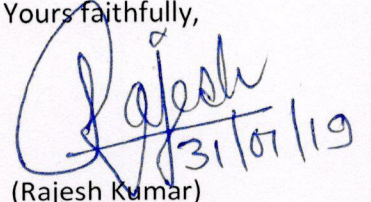 Yours faithfully,
Rajesh
31/01/19
(Rajesh Kumar)